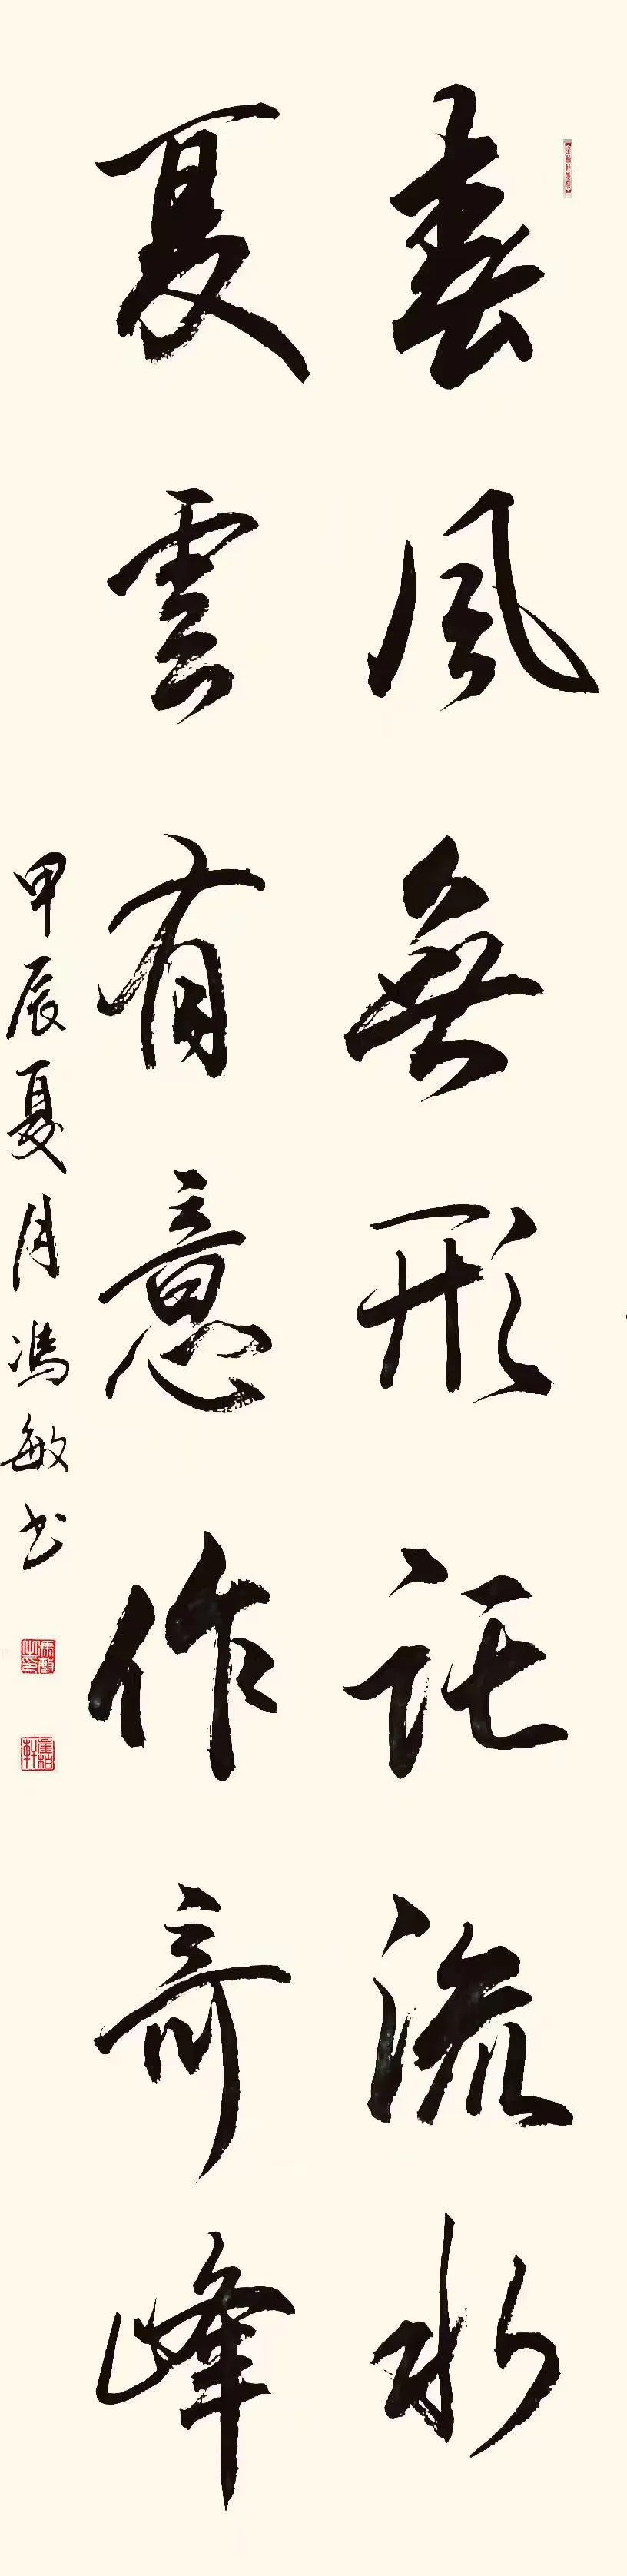 春風無形託流水
夏雲有意作奇峰
甲辰夏月馮敏书
馮敏之印